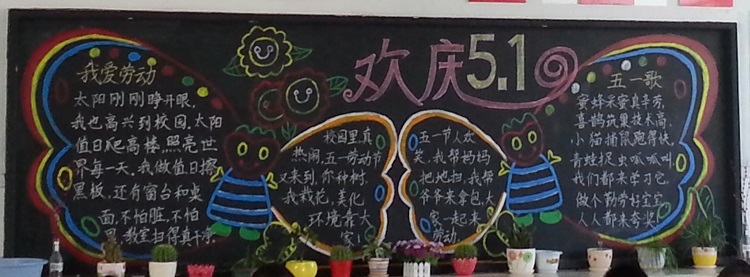 欢庆5.1
我爱劳动
太阳刚刚睁开眼,
我也高兴到校园.太阳
值日爬高楼,照亮世
界每一天.我做值日擦
黑板,还有窗台和桌
面.不怕脏,不怕
累,教室扫得真干净.
校园里真
热闹,五一劳动节
又来到.你种树,
我栽花,美化
环境靠大
家!
五一节人欢
笑,我帮妈妈
把地扫,我帮
爷爷来拿包,大
家一起来
劳动.
五一歌
蜜蜂采蜜真辛劳,
喜鹊筑巢技术高,
小猫捕鼠跑得快,
青蛙捉虫呱呱叫.
我们都来学习它,
做个勤劳好宝宝,
人人都来夸奖.